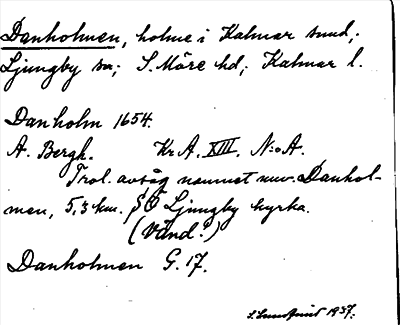 Danholmen, holme i Kalmar sund,
Ljungby sn; S. Möre hd; Kalmar l.
Danholm 1654.
A. Bergh. Kr. A. XIII. N:o A.
Trol. avsåg namnet nuv. Danhol-
men, 5,3 km. SÖ Ljungby kyrka.
(Vänd!)
Danholmen G. 17.
1937.